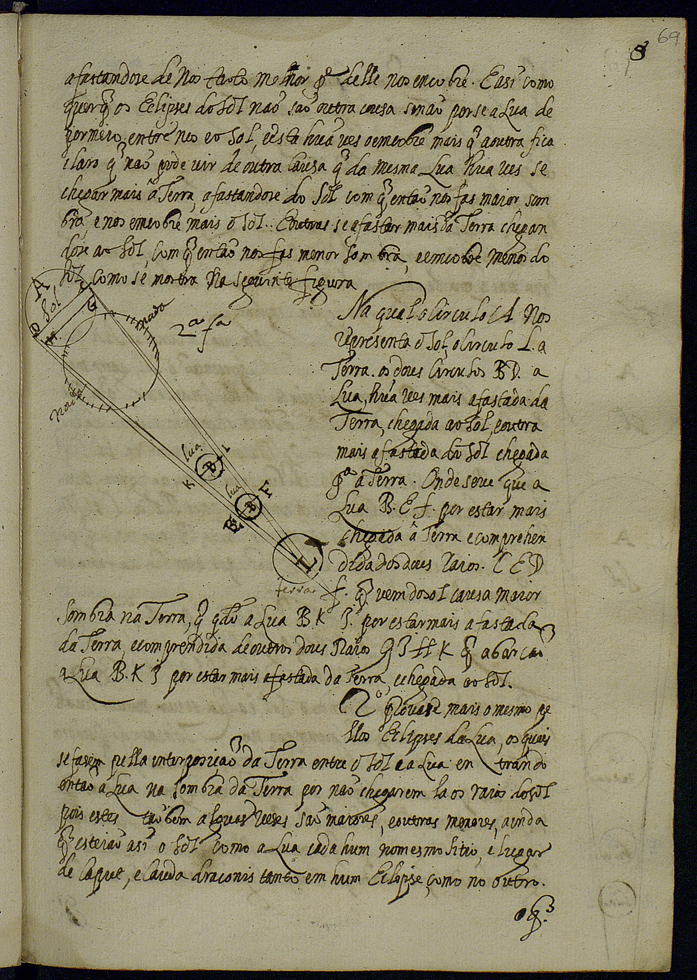 69
8
afastandose de Nos tanto menor pᵗᵉ delle nos encobre. E asi como
porq̃ os Eclipses do Sol naõ saõ outra cousa senaõ porse a Lua de
permeio, entre nos e o Sol, e esta huã ves o encobre mais q̃ a outra fica
claro q̃ naõ pode vir de outra causa q̃ da mesma Lua huã ves se
chegar mais â Terra, afastandose do Sol com q̃ entaõ nos fas maior som
bra, e nos encobre mais o Sol. E outras se afastar mais da Terra chegan
dose ao Sol, com q̃ entaõ nos fas menor sombra, e encobre menos do
Sol, como se mostra na seguinte figura
2ᵃ fᵃ
A
Sol
G
D
H
nada
lua
K B I
lua
E B F
L
terra
Na qual o Circulo A Nos
representa o Sol, o Circulo L. a
Terra. os dous Circulos B D. a
Lua, huã ves mais afastada da
Terra, chegada ao Sol, e outra
mais afastada do Sol chegada
pᵃ a Terra. Onde se ve que a
Lua B. E f. por estar mais
chegada â Terra e comprehen
dida dos dous raios. C E D
f. q̃ vem do sol causa maior
sombra na Terra, q̃ qdo a Lua B K I. por estar mais afastada
da Terra, e comprendida de outros dous Raios G I H K q̃ abarcaõ
a Lua B. K I por estar mais afastada da Terra, e chegada ao Sol.
2º prouase mais o mesmo pe
llos Eclipses da Lua, os quais
se fasem pella interposiçaõ da Terra entre o Sol e a Lua en trando
entaõ a Lua na sombra da Terra por naõ chegarem la os raios do Sol
pois estes taõbem alguas veses saõ maiores, e outras menores, ainda
q̃ esteiaõ asi o Sol como a Lua cada hum no mesmo sitio, e lugar
de Caput, e Cauda draconis tanto em hum Eclipse, como no outro.